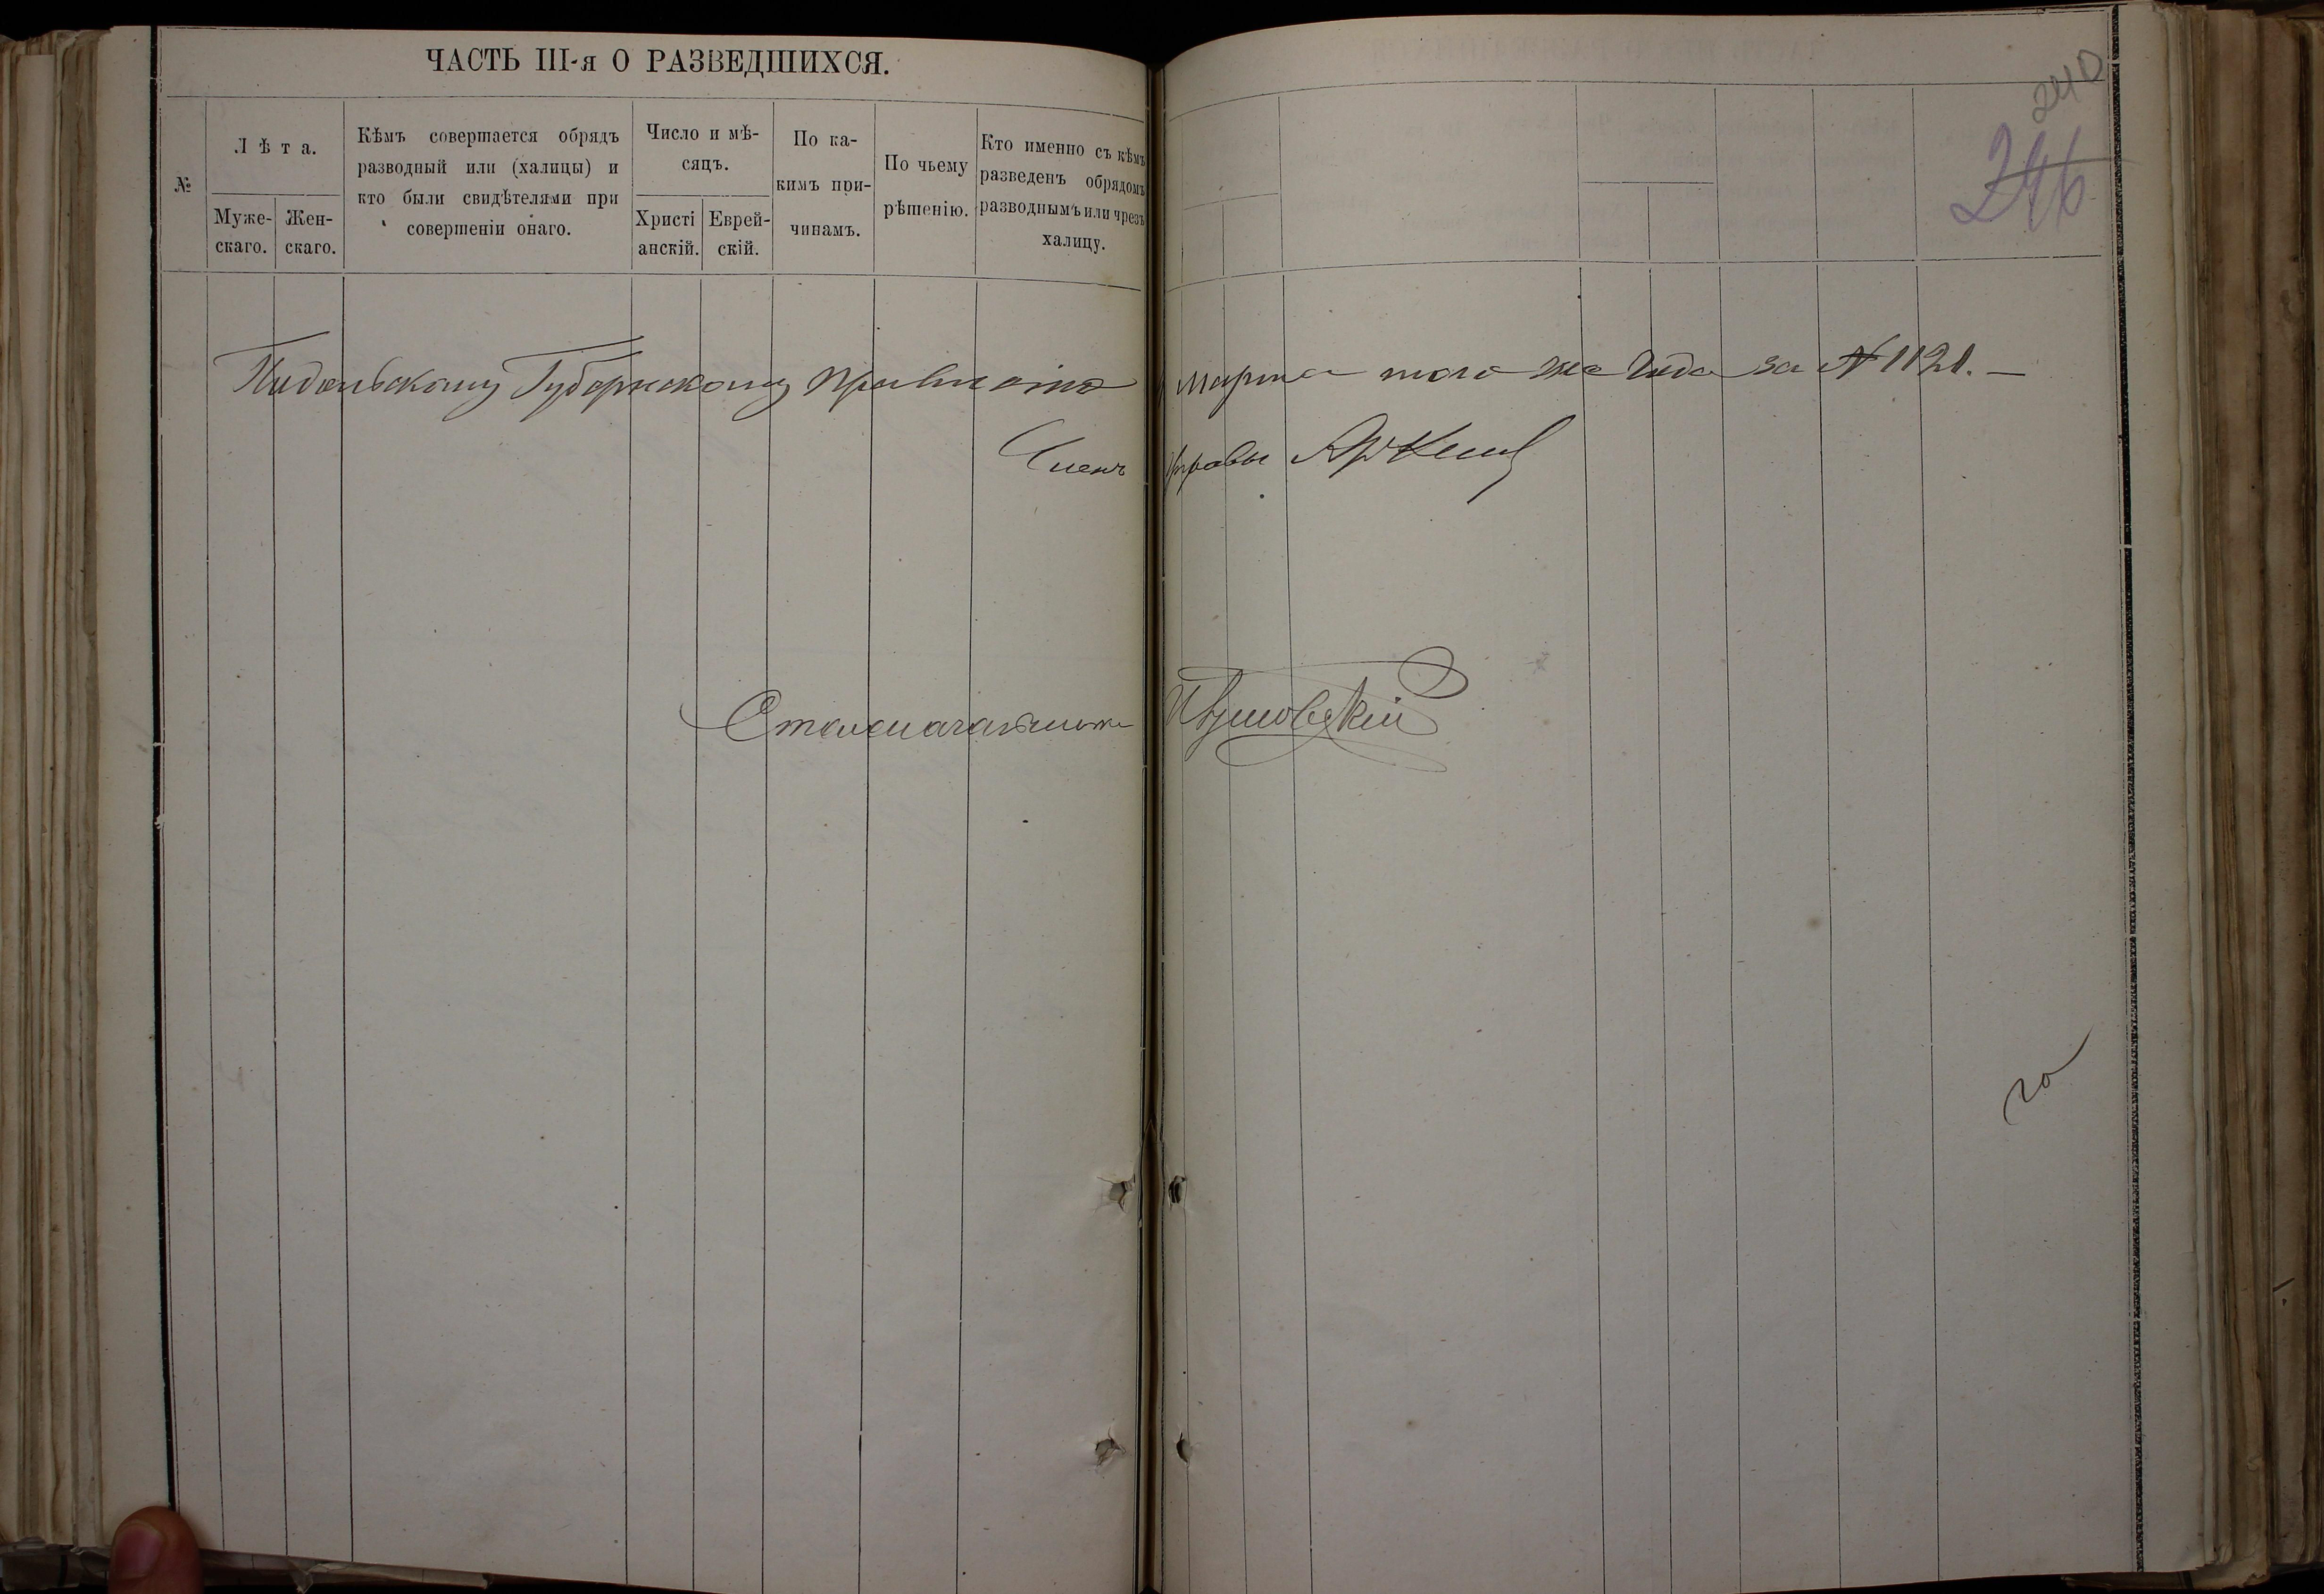 ЧАСТЬ III-я О РАЗВЕДШИХСЯ.
№
Лѣта.
Муже-
скаго.
Жен-
скаго.
Кѣмъ совершается обрядъ
разводный или (халицы) и
кто были свидѣтелями при
совершеніи онаго.
Число и мѣ-
сяцъ.
Христі
анскій.
Еврей-
скій.
По ка-
кимъ при-
чинамъ.
По чьему
рѣшенію.
Кто именно съ кѣмъ
разведенъ обрядомъ
разводнымъ или чрезъ
халицу.
240
246
Подольскому Губернскому Правленію марта того же года за № 1121. —
Членъ Управы
Столоначальникъ
го